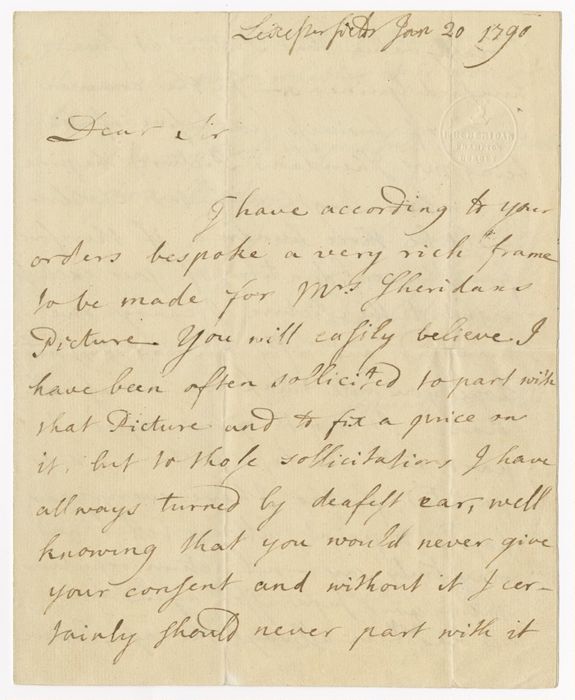 Leicesterfields Jan 20 1790
Dear Sir
I have according to your
orders bespoke a very rich frame
to be made for Mrs Sheridans
Picture. You will easily believe I
have been often sollicited to part with
that Picture and to fix a price on
it, but to those sollicitations I have
allways turned by deafest ear, well
knowing that you would never give
your consent and without it I cer-
tainly should never part with it